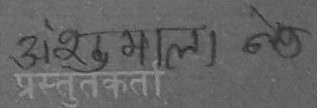 अंशुमाला
प्रस्तुतकर्ता